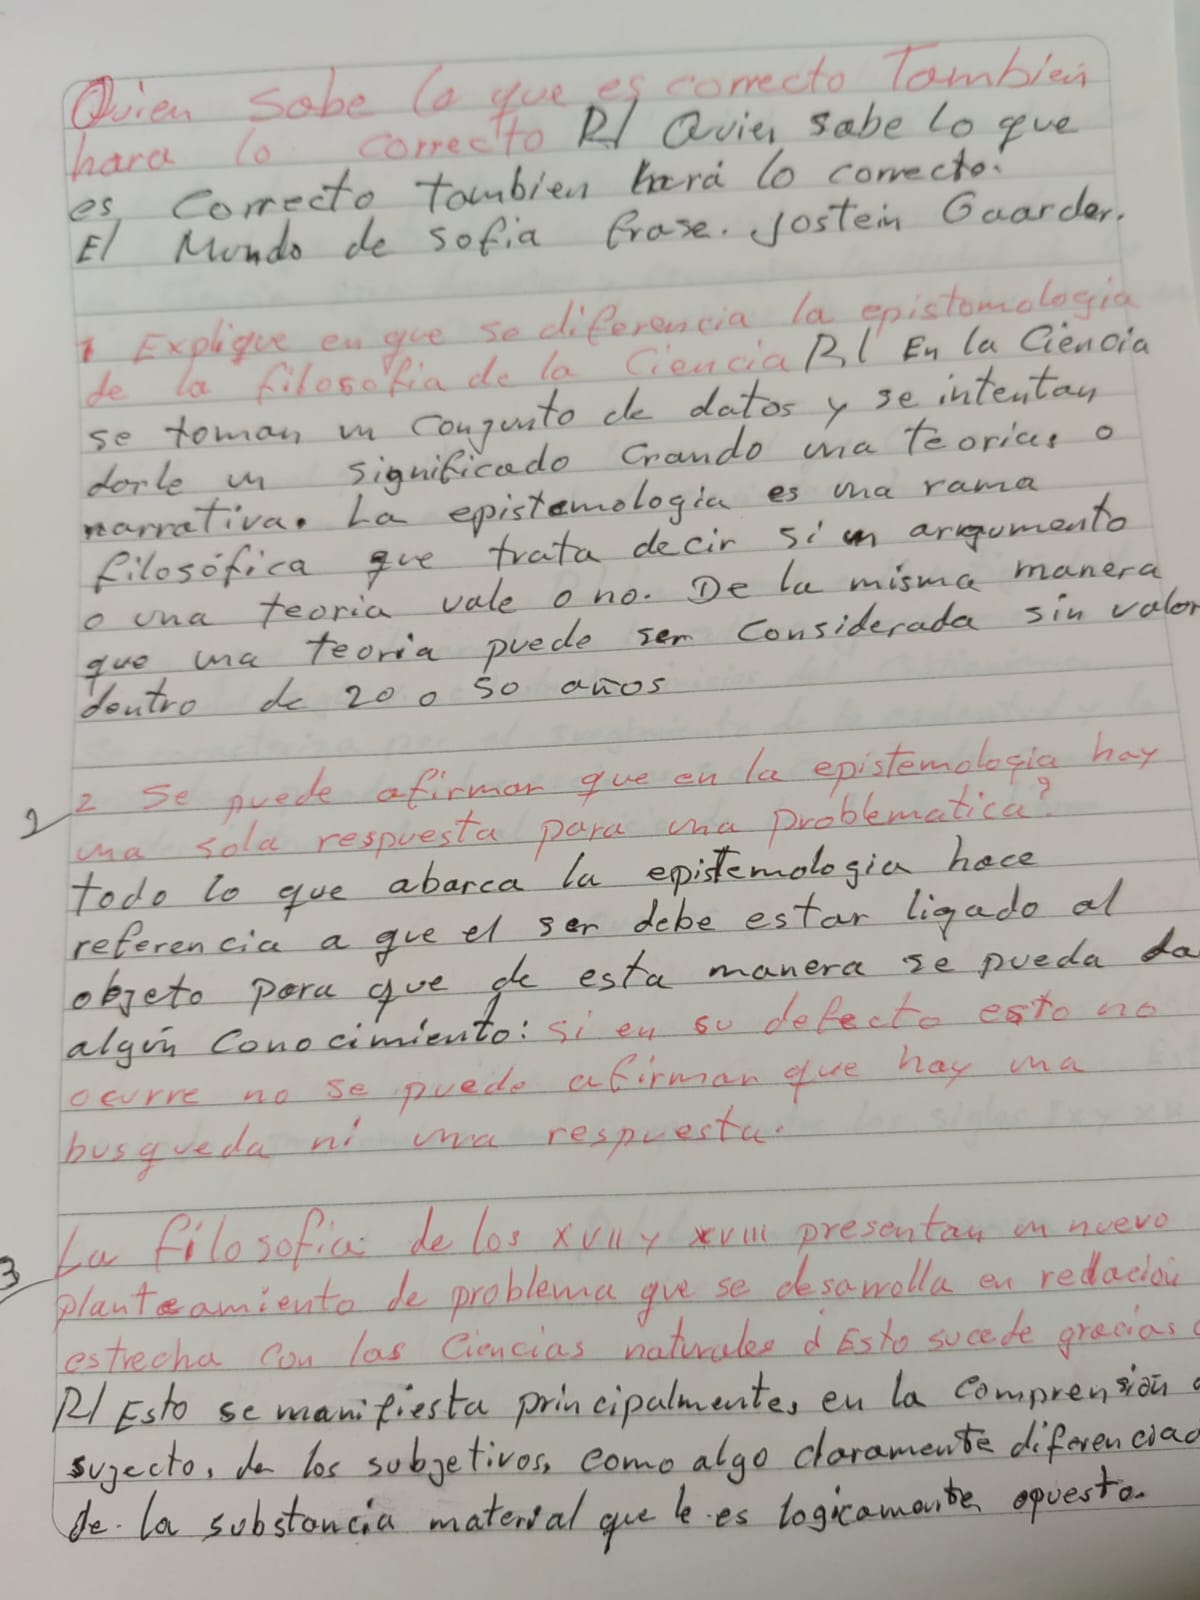 Quien sabe lo que es correcto Tambien
hara lo correcto R/ Quien sabe lo que
es Correcto tambien hará lo correcto.
El Mundo de Sofia frase. Jostein Gaarder.
1 Explique en que se diferencia la epistomologia
de la filosofia de la Ciencia R/ En la Ciencia
se toman un conjunto de datos y se intentan
darle un significado Crando una teorias o
narrativa. La epistemologia es una rama
filosófica que trata decir si un argumento
o una teoria vale o no. De la misma manera
que una teoria puede ser Considerada sin valor
dentro de 20 o 50 años
2 2 Se puede afirmar que en la epistemologia hay
una sola respuesta para una problematica?
todo lo que abarca la epistemologia hace
referencia a que el ser debe estar ligado al
objeto para que de esta manera se pueda da
algún Conocimiento: si en su defecto esto no
ocurre no se puede afirman que hay una
busqueda ni una respuesta.
3 La filosofia de los XVII y XVIII presentan un nuevo
planteamiento de problema que se desarrolla en redación
estrecha con las Ciencias naturales d Esto sucede gracias
R/ Esto se manifiesta principalmente, en la comprensión
sujecto, de los subjetivos, como algo claramente diferenciad
de la substancia material que le es logicamente opuesta.